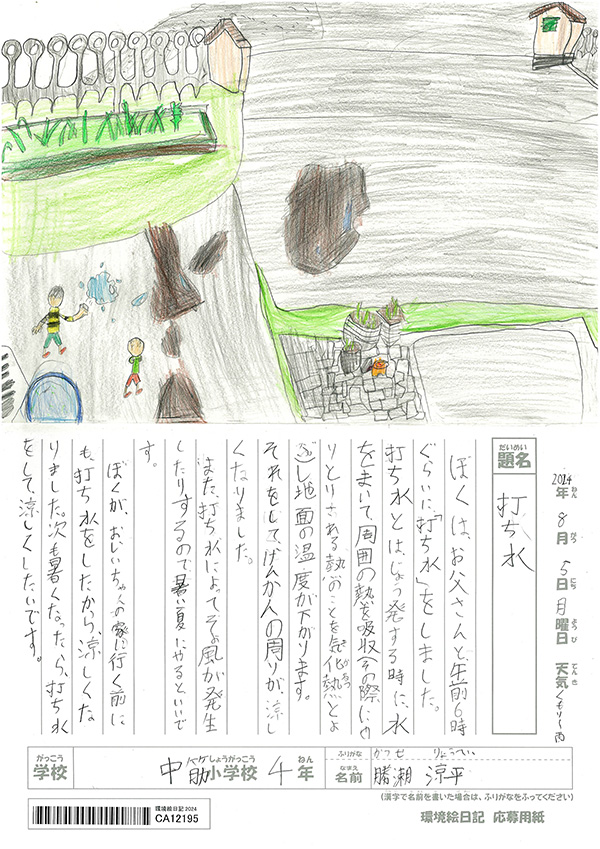 2024年ねん 8月がつ 5日にち 月曜日ようび 天気てんき くもり〜雨
だいめい
題名
打ち水
ぼくは、お父さんと午前6時
ぐらいに、「打ち水」をしました。
打ち水とは、じょう発する時に、水
をまいて周囲の熱を吸収(その際にや
りとりされる熱のことを気化熱とよ
ぶ)し地面の温度が下がります。
それをして、げんかんの周りが、涼し
くなりました。
また、打ち水によってそよ風が発生
したりするので暑い夏にやるといいで
す。
ぼくが、おじいちゃんの家に行く前に
も、打ち水をしたから、涼しくな
りました。次も暑くなったら、打ち水
をして、涼しくしたいです。
がっこう
学校
中筋小学校しょうがっこう 4年ねん
ふりがな かつせ りょうへい
なまえ
名前 勝瀬 涼平
(漢字で名前を書いた場合は、ふりがなをふってください)
環境絵日記 2024
CA12195
環境絵日記 応募用紙